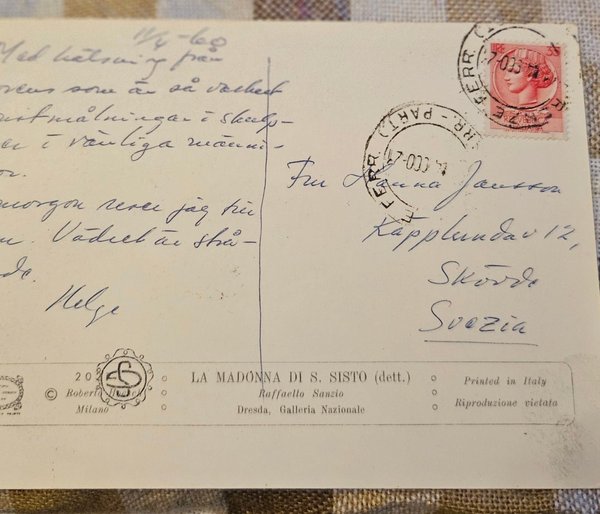 11/4 -60
Med hälsning från
som är så vackert
målningar i skulp-
i vänliga männi-
or.
morgon reser jag till
n. Vädret är strå-
de.
Helge
Fru Hanna Jansson
Käpplundav 12,
Skövde
Svezia
FERR.
FERR. - PART.
LA MADONNA DI S. SISTO (dett.)
Raffaello Sanzio
Dresda, Galleria Nazionale
20
S
© Roberto
Milano
Printed in Italy
Riproduzione vietata